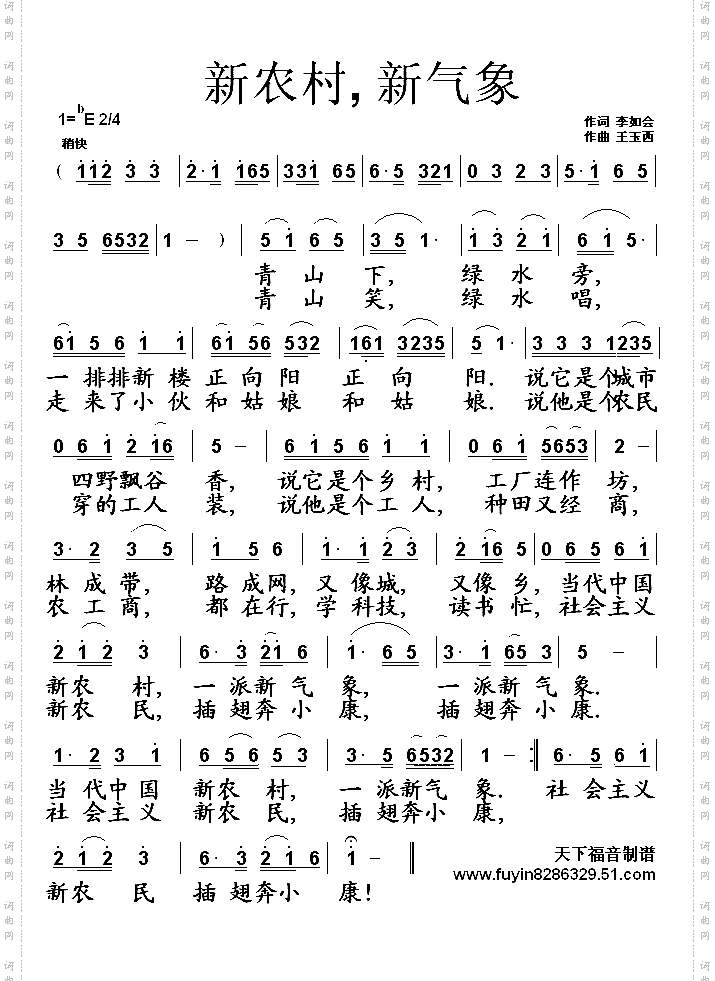 新农村，新气象
1=♭E 2/4
作词 李如会
稍快
作曲 王玉西
( 112 3 3 | 2·1 165 | 331 65 | 6·5 321 | 0 3 2 3 | 5·1 6 5 |
3 5 6532 | 1 – ) | 5 1 6 5 | 3 5 1· | 1 3 2 1 | 6 1 5· |
青 山 下， 绿 水 旁，
青 山 笑， 绿 水 唱，
61 5 6 1 1 | 61 56 532 | 161 3235 | 5 1· | 3 3 3 1235 |
一 排排新 楼 正 向 阳 正 向 阳. 说它是个城市
走 来了小 伙 和 姑 娘 和 姑 娘. 说他是个农民
0 6 1 2 16 | 5 – | 6 1 5 6 1 1 | 0 6 1 5653 | 2 – |
四野飘谷 香， 说它是个乡 村， 工厂连作 坊，
穿的工人 装， 说他是个工 人， 种田又经 商，
3· 2 3 5 | 1 5 6 | 1· 1 2 3 | 2 16 5 | 0 6 5 6 1 |
林 成 带， 路 成网，又 像城， 又像 乡，当代中国
农 工 商， 都 在行，学 科技， 读书 忙，社会主义
2 1 2 3 | 6· 3 21 6 | 1· 6 5 | 3· 1 65 3 | 5 – |
新农 村， 一 派新 气 象， 一 派新 气 象.
新农 民， 插 翅奔 小 康， 插 翅奔 小 康.
1· 2 3 1 | 6 5 6 5 3 | 3· 5 6532 | 1 – :‖ 6· 5 6 1 |
当 代中 国 新农 村， 一 派新气 象. 社 会主义
社 会主义 新农 民， 插 翅奔小 康，
2 1 2 3 | 6· 3 2 1 6 | 1 – ‖
天下福音制谱
www.fuyin8286329.51.com
新农 民 插 翅奔小 康！
词曲网
词曲网
词曲网
词曲网
词曲网
词曲网
词曲网
词曲网
词曲网
词曲网
词曲网
词曲网